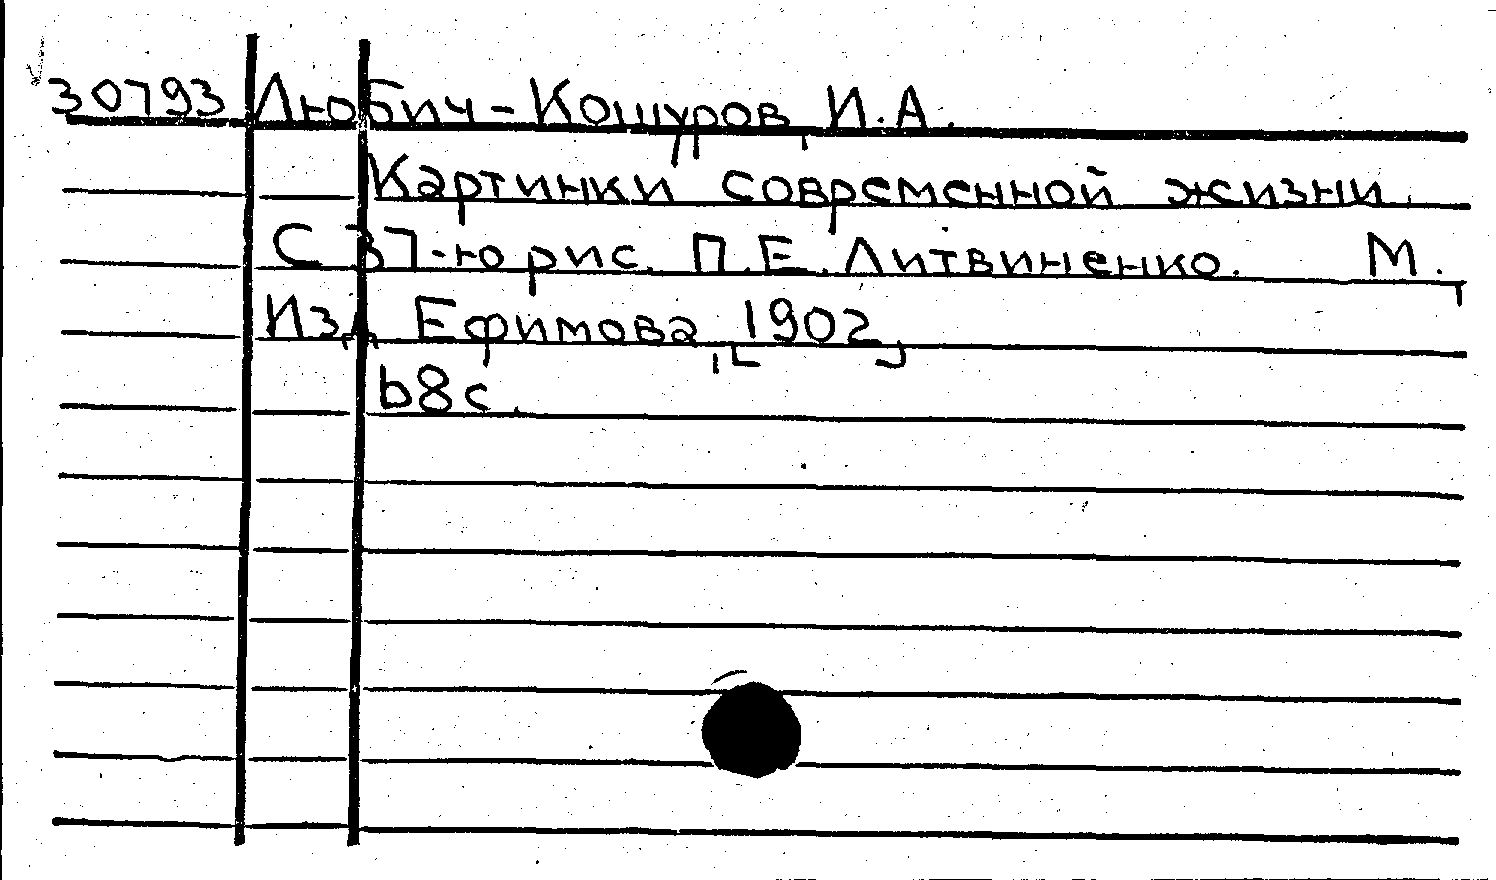 30793 Любич-Кошуров, И.А.
Картинки современной жизни.
С 37-ю рис. П.Е. Литвиненко. М.,
Изд. Ефимова, [1902]
68 с.